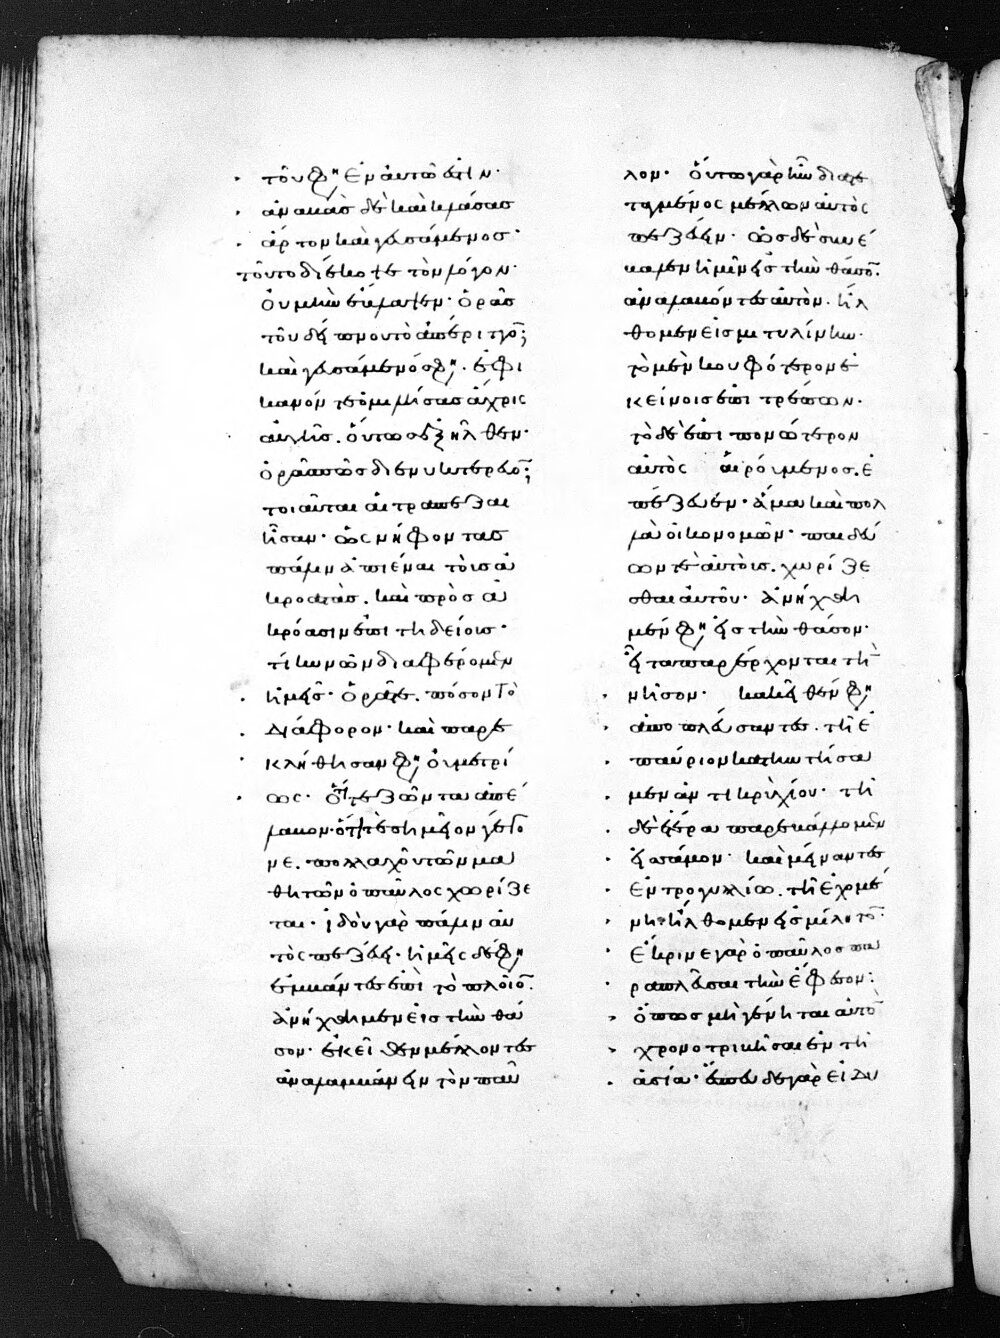 τοῦ φη, ἐν αὐτῶ ἐστίν·
ἀναβὰς δὲ καὶ κλάσας
ἄρτον καὶ γευσάμενος·
τοῦτο διέκοψε τὸν λόγον·
οὐ μὴν ἔβλαψεν· ὁρᾶς
τοῦ δείπνου τὸ ἀπέριττον;
καὶ γευσάμενός φη, ἐφι
κανόν τε ὁμιλήσας ἄχρις
αὐγῆς. οὕτως ἐξῆλθεν·
ὁρᾶς πῶς διενυκτέρευον;
τοιαῦται αἱ τράπεζαι
ἦσαν· ὡς νήφοντας
πάλιν ἀπιέναι τοὺς ἀ
κροατάς. καὶ πρὸς ἀ
κρόασιν ἐπιτηδείους·
τί κυνῶν διαφέρομεν
ἡμεῖς· ὁρᾶτε. πόσον τὸ
διάφορον· καὶ παρε
κλήθησαν φη, οὐ μετρί
ως· ὅτι τε ζῶντα ἀπέ
λαβον· ὅτι τὲ σημεῖον γέγο
νε. πολλαχοῦ τῶν μα
θητῶν ὁ παῦλος χωρίζε
ται· ἰδοὺ γὰρ πάλιν αὐ
τὸς πεζεύει· ἡμεῖς δέ φη,
ἐμβάντες ἐπὶ τὸ πλοῖον·
ἀνήχθημεν εἰς τὴν θά
σον· ἐκεῖθεν μέλλοντες
ἀναλαμβάνειν τὸν παῦ
λον· οὕτω γὰρ ἦν διατε
ταγμένος μέλλων αὐτὸς
πεζεύειν· ὡς δὲ συνέ
βαλεν ἡμῖν εἰς τὴν θάσον.
ἀναλαβόντες αὐτὸν. ἤλ
θομεν εἰς μιτυλίνην·
τὸ μὲν κουφότερον ἐ
κείνοις ἐπιτρέπων·
τὸ δὲ ἐπιπονώτερον
αὐτὸς αἱρούμενος. ἐ
πέζευεν· ἅμα καὶ πολ
λὰ οἰκονομῶν· παιδεύ
ων τὲ αὐτοὺς. χωρίζε
σθαι αὐτοῦ· ἀνήχθη
μεν φη, εἰς τὴν θάσον·
εἶτα παρέρχονται τὴν
νῆσον· κἀκεῖθεν φη,
ἀποπλεύσαντες. τῆ ἐ
πιούριον κατηντήσα
μεν ἀντικρὺ χίου· τῆ
δὲ ἑτέρα παρεβάλλομεν
εἰς σάμον· καὶ μείναντες
ἐν τρογυλίω. τῆ ἐχομέ
νη ἤλθομεν εἰς μίλητον·
ἔκρινε γὰρ ὁ παῦλος πα
ραπλεῦσαι τὴν ἔφεσον·
ὅπως μὴ γένηται αὐτῶ
χρονοτριβῆσαι ἐν τῆ
ἀσία· ἔσπευδε γὰρ εἰ δυ